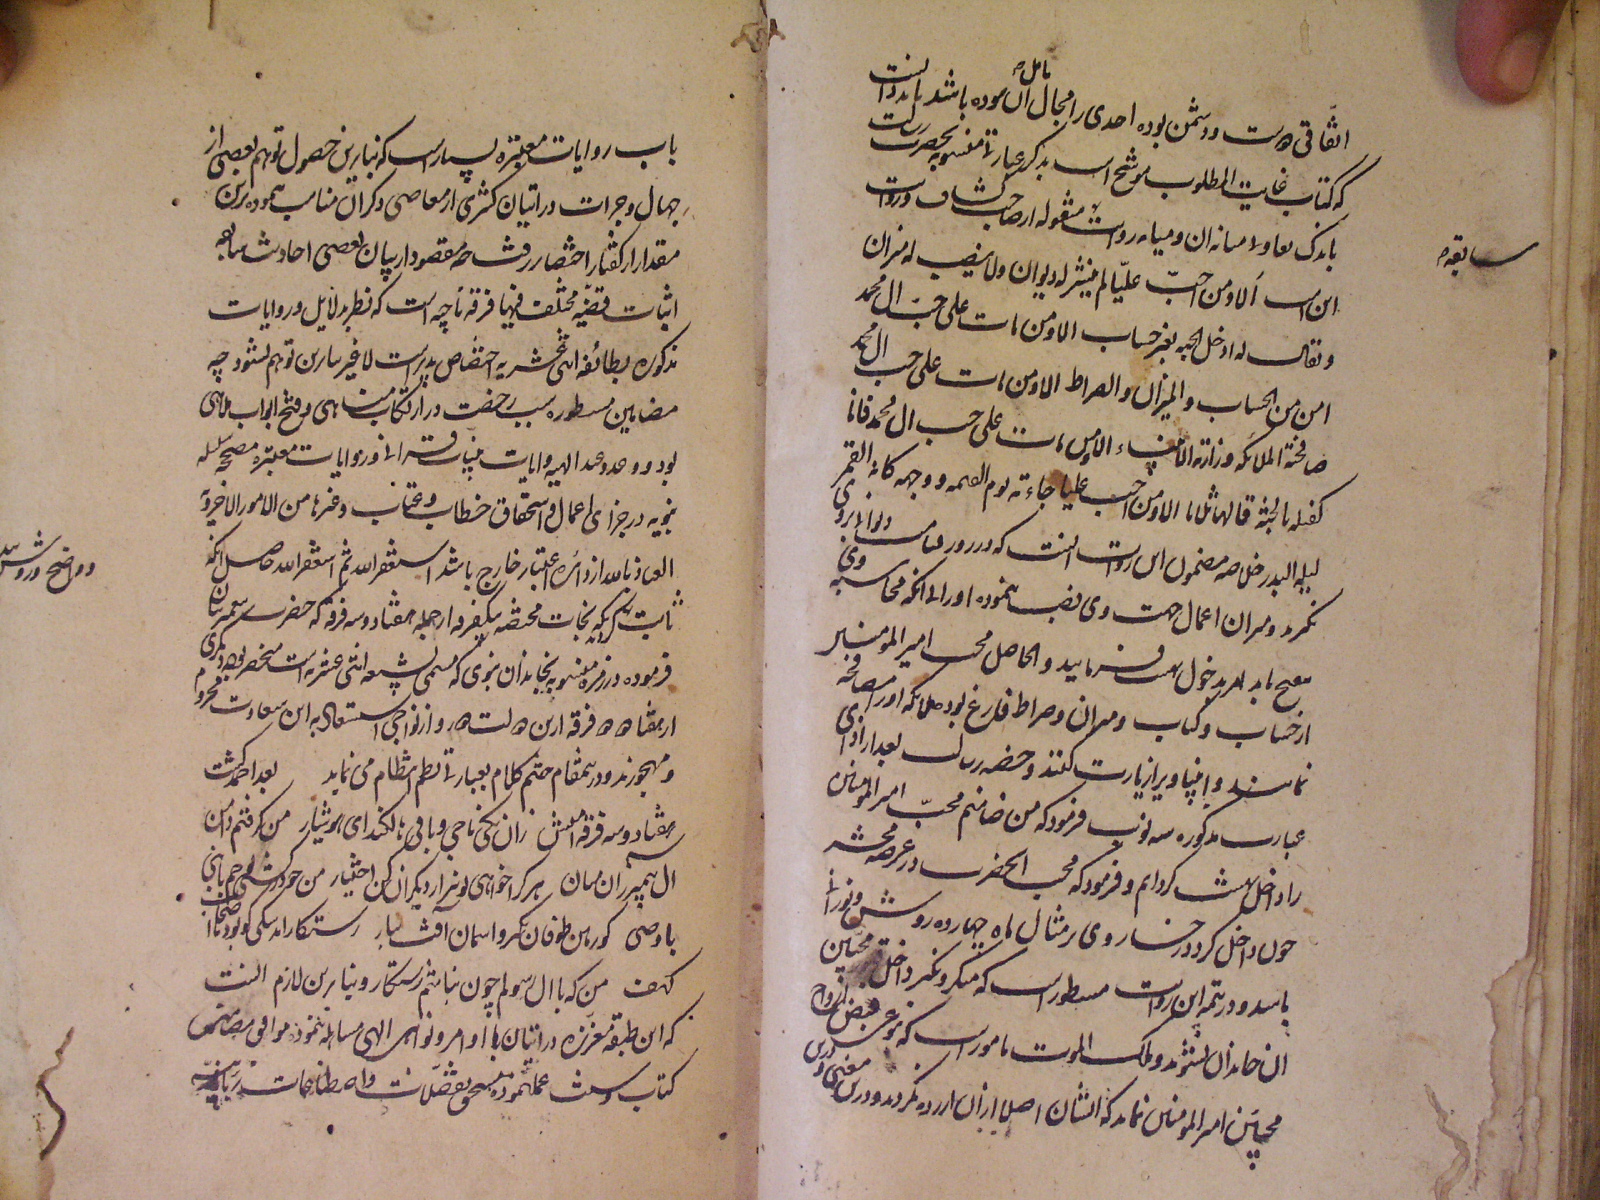 اتفاقی دوست و دشمن بوده احدی را مجال آن نبوده باشد باید دانست
تامل
که کتاب غایت المطلوب موشح است بذکر عبارت منسوبه بحضرت رسالت
باندک تفاوت میانه آن و میانه روایت منقوله از صاحب کشاف و روایت
سابقه
این است ألا و من احب علیا لم ینشر له دیوان و لا ینصب له میزان
و یقال له ادخل الجنة بغیر حساب الا و من مات علی حب ال محمد
امن من الحساب و المیزان و الصراط الا و من مات علی حب ال محمد
صافحته الملائکة و زارته الانبیاء الا و من مات علی حب ال محمد فانا
کفیله بالجنة قالها ثلاثا الا و من احب علیا جاء یوم القیمة و وجهه کانه القمر
لیلة البدر خلاصه مضمون این روایت آنست که در روز قیامت دیوان برای
نگیرد و میزان اعمال جهت وی نصب ننموده او را بی آنکه محاسبه وی
نماید امر بدخول بهشت فرمایید و الحاصل محب امیر المومنین
از حساب و کتاب و میزان و صراط فارغ بوده ملائکه او را مصافحه
نمایند و انبیا ویرا زیارت کنند و حضرت رسالت بعد از ادای
عبارت مذکوره سه نوبت فرمود که من ضامنم محب امیر المومنین
را داخل بهشت کردانم و فرمود که محب آنحضرت در عرصه محشر
چون داخل کردد رخسار وی بر مثال ماه چهارده روشن و نورانی
باشد و در تتمه این روایت مسطور است که منکر و نکیر داخل محبین
آن خاندان نشوند و ملک الموت مامور است که قبض ارواح
محبین امیر المومنین نماید که ایشان اصلا از آن آزرده نکردند و درین معنی
باب روایات معتبره بسیار است که بنابرین حصول توهم بعضی از
جهال و جرات در اتیان کثیری از معاصی ذکر آن مناسب ننموده برین
مقدار از گفتار اختصار رفت چه مقصود از بیان بعضی احادیث سابقه
اثبات قضیه مختلف فیها فرقه ناجیه است که نظر بدلایل و روایات
مذکوره بطائفه اثنی عشریه اختصاص پذیر است لا غیر بنابرین توهم نشود چه
مضامین مسطوره سبب رخصت در ارتکاب مناهی و فتح ابواب ملاهی
بود و وعد و وعید الهیه و ایات بینات قرانی و روایات معتبره مصححه سلسله
نبویه در جزای اعمال و استحقاق خطاب و عقاب و غیرها من الامور الاخرویة
العیاذ بالله از دائره اعتبار خارج باشد استغفر الله ثم استغفر الله حاصل آنکه
و واضح و روشن شد
ثابت که نجات مختصه بیکفرقه از جمله هفتاد و سه فرقه که حضرت پیغمبر بیان
فرموده در زمره منسوبه بخاندان نبوی که مسمی بشیعه اثنی عشریه است منحصر بوده دیگری
از هفتاد دو فرقه ازین دولت دور و از نواحی استسعاد به این سعادت محروم
و مهجورند و در همین مقام ختم کلام بعبارت نظم انتظام می نماید بعد احمد گشت
هفتاد و سه فرقه امتش زان یکی ناجی و باقی هالکند ای هوشیار من گرفتم دامن
ال پیمبر زان میان هر کرا خواهی تو نیز از دیگران کن اختیار
با وصی گو زمین طوفان بگیر و اسمان آتش ببار رستکار آمد سگی
کهف من که با ال رسولم چون نباشم رستکار و بنابرین لازم آنست
که این طبقه معززه در اتیان باوامر و نواهی الهی مساهله ننموده موافق مضامین
کتاب و سنت عمل نموده مستحق تفضلات و اصطناعات ربانیه